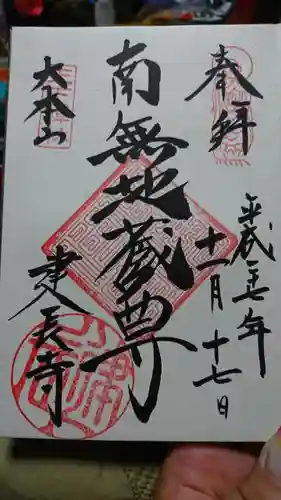 奉拝
平成二七年
十一月十七日
南無地蔵尊
大本山
建長寺